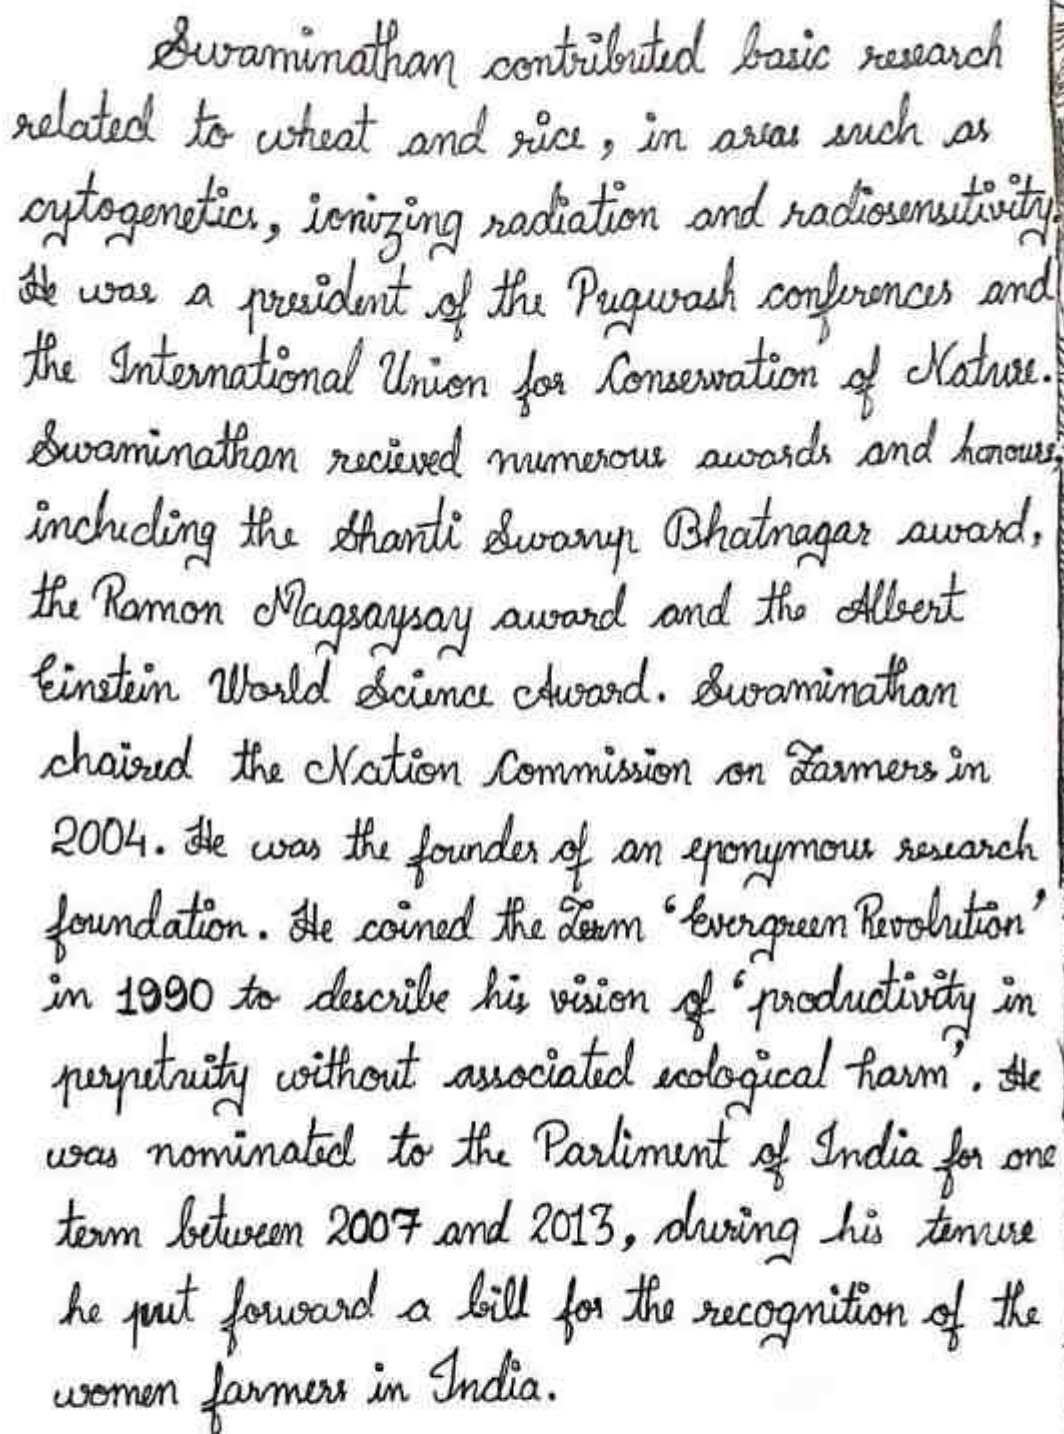 Swaminathan contributed basic research
related to wheat and rice, in areas such as
cytogenetics, ionizing radiation and radiosensitivity
He was a president of the Pugwash conferences and
the International Union for Conservation of Nature.
Swaminathan recieved numerous awards and honours,
including the Shanti Swarup Bhatnagar award,
the Ramon Magsaysay award and the Albert
Einstein World Science Award. Swaminathan
chaired the Nation Commission on Farmers in
2004. He was the founder of an eponymous research
foundation. He coined the Term 'Evergreen Revolution'
in 1990 to describe his vision of 'productivity in
perpetuity without associated ecological harm'. He
was nominated to the Parliment of India for one
term between 2007 and 2013, during his tenure
he put forward a bill for the recognition of the
women farmers in India.